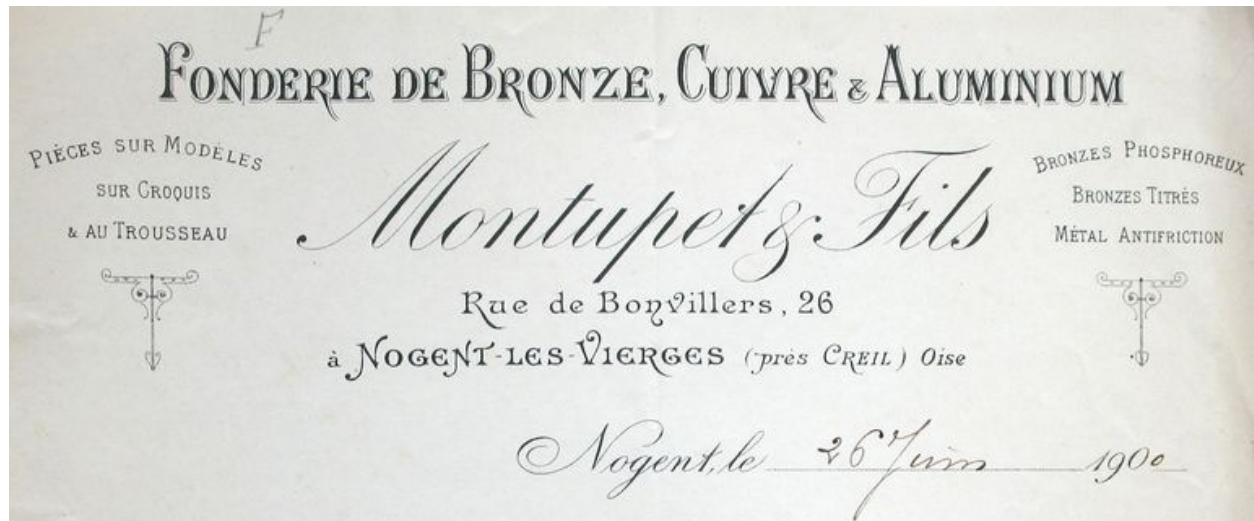 F
FONDERIE DE BRONZE, CUIVRE & ALUMINIUM
PIÈCES SUR MODÈLES
SUR CROQUIS
& AU TROUSSEAU
Montupet & Fils
BRONZES PHOSPHOREUX
BRONZES TITRÉS
MÉTAL ANTIFRICTION
Rue de Bonvillers, 26
à NOGENT-LES-VIERGES (près CREIL) Oise
Nogent, le 26 Juin 1900